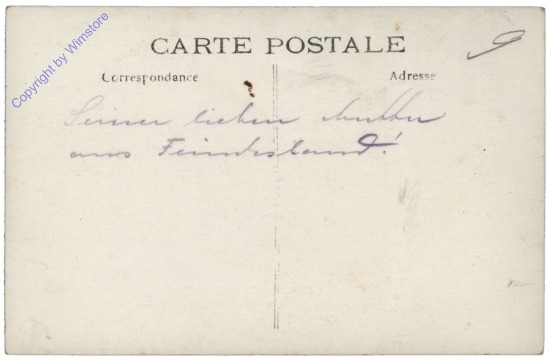 Copyright by Wimstore
CARTE POSTALE
Correspondance
Adresse
Seiner lieben Mutter
aus Feindesland!